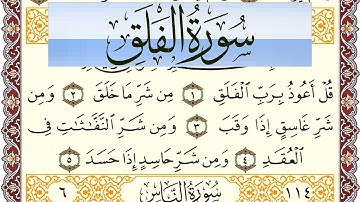 سُورَةُ الْفَلَقِ
قُلْ أَعُوذُ بِرَبِّ الْفَلَقِ ١ مِن شَرِّ مَا خَلَقَ ٢ وَمِن
شَرِّ غَاسِقٍ إِذَا وَقَبَ ٣ وَمِن شَرِّ النَّفَّاثَاتِ فِي
الْعُقَدِ ٤ وَمِن شَرِّ حَاسِدٍ إِذَا حَسَدَ ٥
١١٤ سُورَةُ النَّاسِ ٦